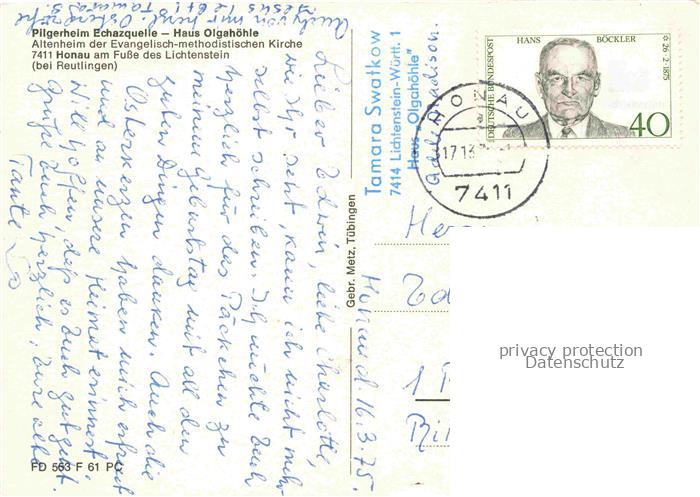 Pilgerheim Echazquelle – Haus Olgahöhle
Altenheim der Evangelisch-methodistischen Kirche
7411 Honau am Fuße des Lichtenstein
(bei Reutlingen)
Honau d 16.3.75.
Lieber Edwin, liebe Charlotte,
wie Ihr seht, kann ich nicht mehr
selbst schreiben. Ich möchte Euch
herzlich für das Päckchen zu
meinem Geburtstag mit all den
guten Dingen danken. Auch die
Osterkerzen haben mich erfreut
und an unsere Heimat erinnert.
Will hoffen, daß es Euch gut geht.
Grüße Euch herzlich, Eure alte
Tante
Auch von mir herzl. Ostergrüße
Jesus lebt!
Tamara S.
Gebr. Metz, Tübingen
FD 563 F 61 PC
Tamara Swatkow
7414 Lichtenstein-Württ. 1
Haus „Olgahöhle"
HONAU
7411
DEUTSCHE BUNDESPOST
HANS BÖCKLER
* 26·2·1875
40
privacy protection
Datenschutz